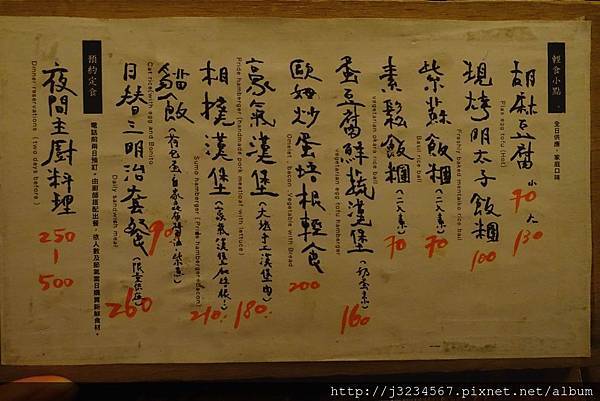 輕食小點
全日供應，家庭口味
胡麻豆腐 小70 大130
Flax egg tofu (Hot)
現烤明太子飯糰 100
Freshly baked mentaiko rice ball
紫蘇飯糰(二入素) 70
Basil rice ball
素鬆飯糰(二入素) 70
vegetarian okara rice ball
蛋豆腐酥蔬漢堡(奶蛋素) 160
Vegetarian egg tofu hamburger
歐姆炒蛋培根輕食 200
Omelet、bacon、Vegetable with Bread
豪氣漢堡(大塊手工漢堡肉) 180.
Pride hamburger (handmade pork meatloaf with lettuce)
相撲漢堡(豪氣漢堡加培根!) 210.
Sumo hamburger (Pride hamburger+Bacon)
貓飯 90
Cat rice(with egg and Bonito
日替三明治套餐(限量供應) 260
Daily sandwich meal
預約定食
電話前兩日預訂，由廚師搭配出餐，依人數及節氣當日購買新鮮食材。
夜間主廚料理 250-500
Dinner reservations (two days before)
http://j3234567.pixnet.net/album